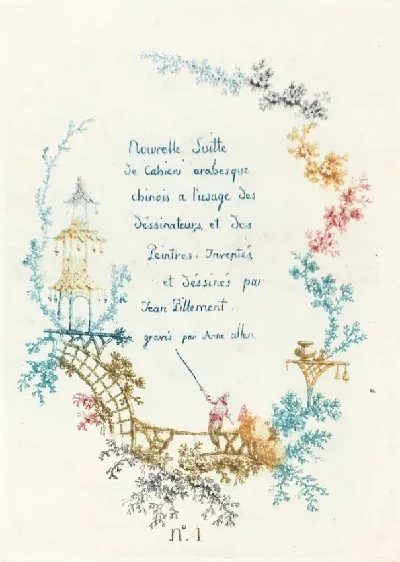 Nouvelle Suitte
de Cahiers arabesque
chinois a l'usage des
dessinateurs et des
Peintres. Inventés
et déssinés par
Jean Pillement.
gravés par Anne allen.
n°. 1